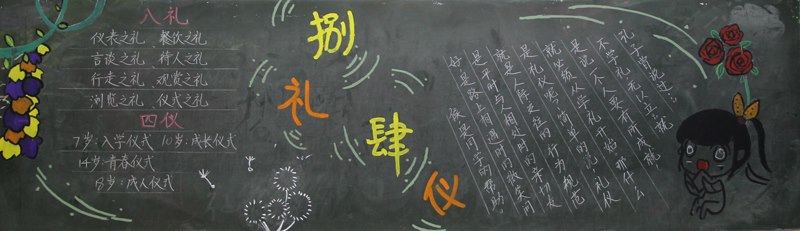 八礼
仪表之礼 餐饮之礼
言谈之礼 待人之礼
行走之礼 观览之礼
游览之礼 仪式之礼
四仪
7岁:入学仪式 10岁:成长仪式
14岁:青春仪式
18岁:成人仪式
捌
礼
肆
仪
孔子曾说过:
不学礼无以立。就
是说一个人要有所成就
就必须从学礼开始。那什么
是礼仪呢?简单的说,礼仪
就是人际交往的行为规范
是平时与人相处时的亲切友
好,是路上相遇时的微笑问
候,是同学的帮助。